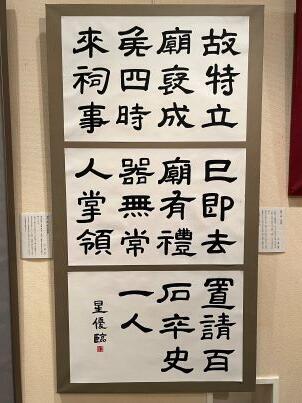 故特立
廟褒成
矦四時
來祠事
巳即去
廟有禮
器無常
人掌領
置請百
石卒史
一人
星優臨